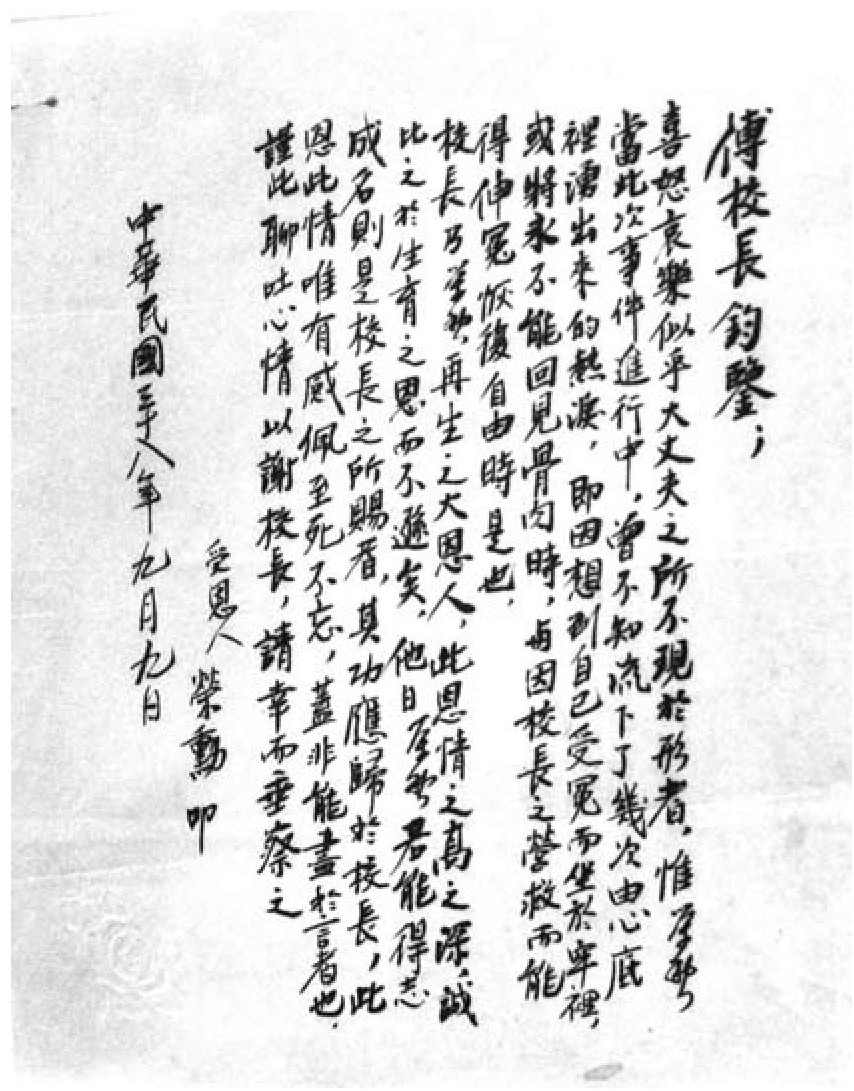 傅校長鈞鑒；
喜怒哀樂似乎大丈夫之所不現於形者，惟學生
當此次事件進行中，曾不知流下了幾次由心底
裡湧出來的熱淚，即因想到自己受冤而坐於牢裡，
或將永不能回見骨肉時，與因校長之營救而能
得伸冤恢復自由時是也，
校長乃學生再生之大恩人，此恩情之高之深，誠
比之於生育之恩而不遜矣，他日學生若能得志
成名則是校長之所賜者，其功應歸於校長，此
恩此情唯有感佩至死不忘，蓋非能盡於言者也，
謹此聊吐心情以謝校長，請幸而垂察之
受恩人 榮勳 叩
中華民國三十八年九月九日